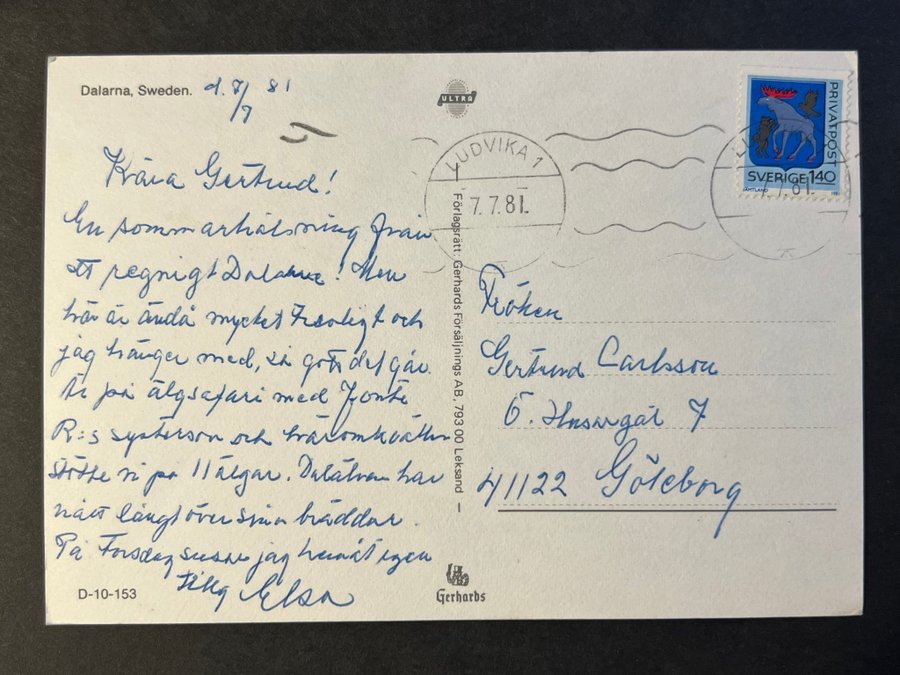 Dalarna, Sweden. d. 7/7 81
ULTRA
LUDVIKA 1
7.7.81
PRIVATPOST
SVERIGE 140
JÄMTLAND
7.7.81
Kära Gertrud!
En sommarhälsning från
ett regnigt Dalarna! Men
här är ändå mycket trevligt och
jag hänger med, så gott det går.
Är på älgsafari med
R:s systerson och häromkvällen
stötte vi på 11 älgar. Dalälven har
nått långt över sina bräddar.
På Torsdag susar jag hemåt igen
Elsa
Förlagsrätt: Gerhards Försäljnings AB, 793 00 Leksand
Fröken
Gertrud Carlsson
Ö. Husargat 7
41122 Göteborg
D-10-153
Gerhards